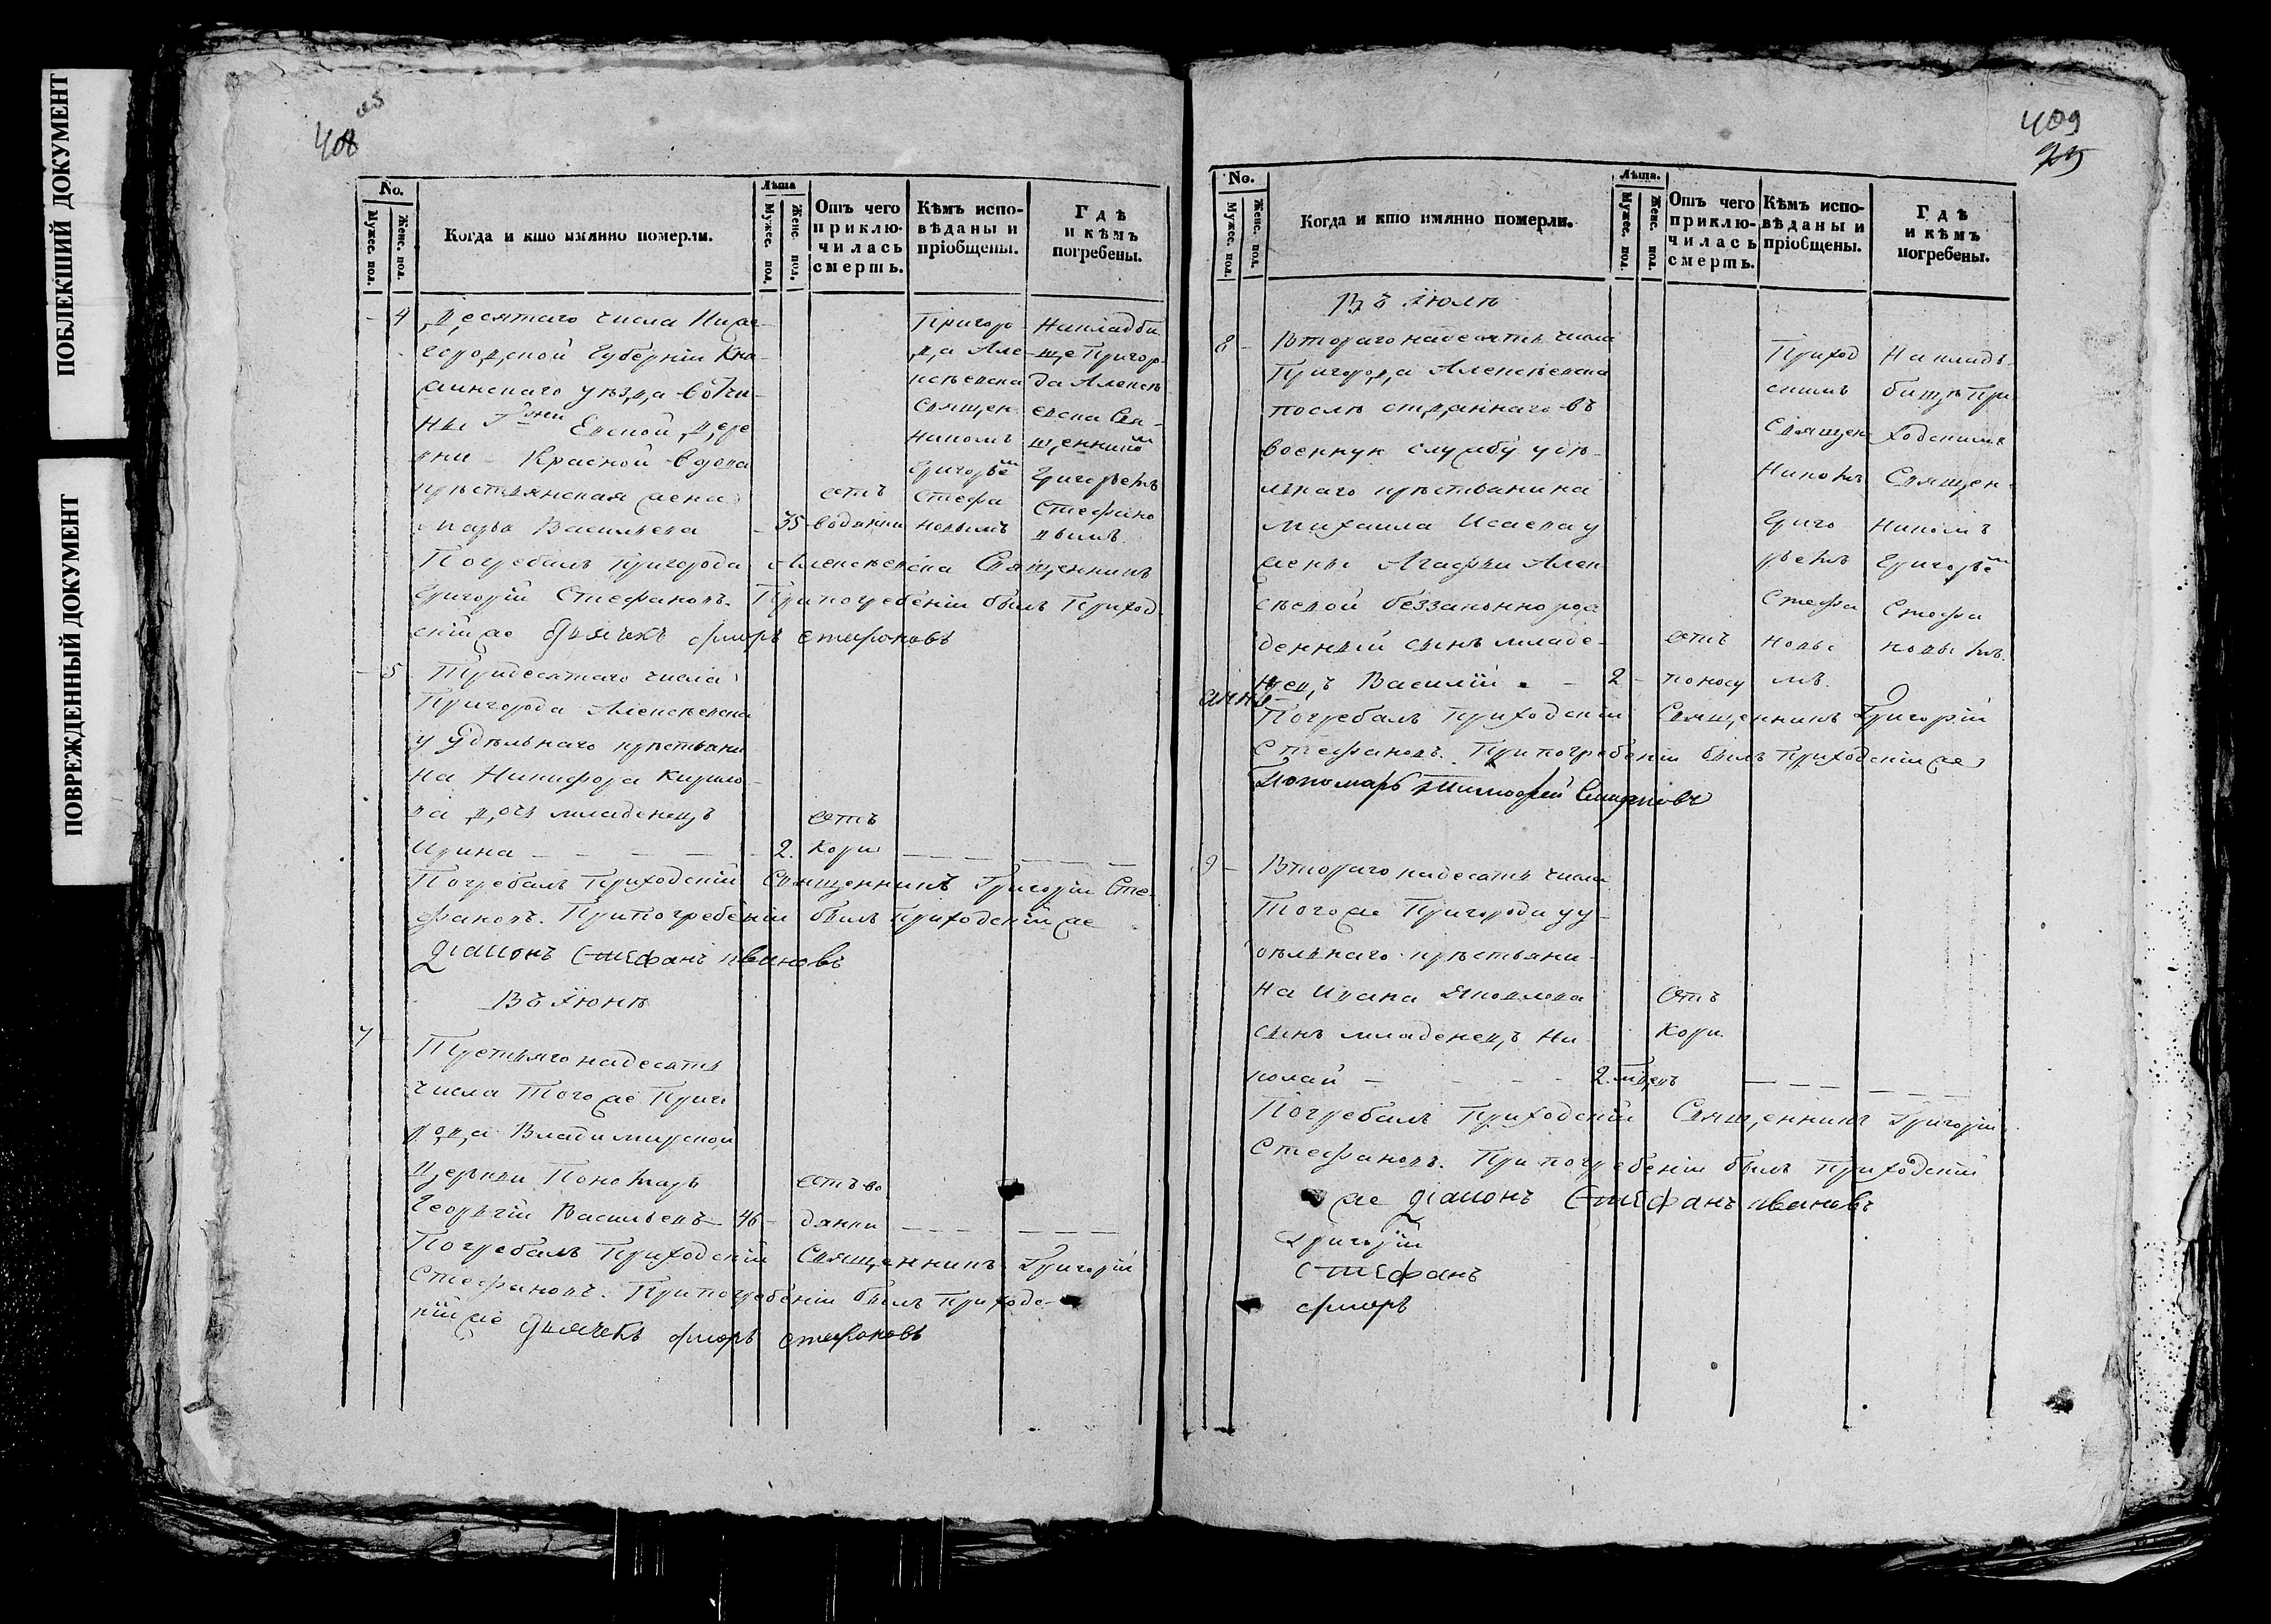 ПОБЛЕКШИЙ ДОКУМЕНТ
ПОВРЕЖДЕННЫЙ ДОКУМЕНТ
408
No.
Мужес. пол.
Женс. пол.
Когда и кто имянно померли.
Лѣта
Мужес. пол.
Женс. пол.
Отъ чего приклю-чилась смерть.
Кѣмъ испо-вѣданы и пріобщены.
Гдѣ и кѣмъ погребены.
4 Десятаго числа Ниже-
городской Губерніи Кня-
гининскаго уѣзда вотчи-
ны Г-жи Евской дере
вни Красной
крѣстьянская жена
Марья Васильева - 35 отъ водянки
Пригоро
да Але
ксѣевска
Священ
никомъ
Григорьемъ
Стефа
новымъ
На кладби
ще Пригор
да Алексѣ
евска Свя-
щенникомъ
Григорьемъ
Стефано
вымъ.
Погребалъ Пригорода Алексѣевска Священникъ
Григорій Стефановъ. При погребеніи былъ Приход
скій же дьячекъ Флоръ Стефановъ
- 5 Тридесятаго числа
Пригорода Алексѣевска
у удѣльнаго крѣстьяни
на Никифора Кирило-
ва дочь младенецъ отъ
Ирина - - - - 2. кори
Погребалъ Приходскій Священникъ Григорій Сте
фановъ. При погребеніи былъ Приходскій же
діаконъ Стефанъ Ивановъ
Въ Іюнѣ
7 Третьяго надесять
числа Того же Приго
рода Владимирской
Церкви Пономарь отъ во
Георгій Васильевъ - 46 - дянки
Погребалъ Приходскій Священникъ Григорій
Стефановъ. При погребеніи былъ Приходс-
кій же дьячекъ Флоръ Стефановъ
409
No.
Мужес. пол.
Женс. пол.
Когда и кто имянно померли.
Лѣта.
Мужес. пол.
Женс. пол.
Отъ чего приклю-чилась смерть.
Кѣмъ испо-вѣданы и пріобщены.
Гдѣ и кѣмъ погребены.
Въ Іюлѣ
8 - Втораго надесять числа
Пригорода Алексѣевска
послѣ отданнаго въ
военную службу удѣ-
льнаго крѣстьянина
Михаила Исаева у
жены Агафьи Алек
сѣевой беззаконно рож
денный сынъ младе-
нецъ Василій - 2 - отъ поносу
Приход
скимъ
Священ
никомъ
Григо
рьемъ
Стефа
новы
мъ.
На клад
бищѣ При
ходскимъ
Священ
никомъ
Григорьемъ
Стефа
новымъ.
Погребалъ Приходскій Священникъ Григорій
Стефановъ. При погребеніи былъ Приходскій же
Пономарь Тимофей Смирновъ
9 - Втораго надесять числа
Того же Пригорода у у
дѣльнаго крѣстьяни-
на Ивана Яковлева отъ
сынъ младенецъ Ни кори
колай - - - - 2.
Погребалъ Приходскій Священникъ Григорій
Стефановъ. При погребеніи былъ Приходскій
же діаконъ Стефанъ Ивановъ
Григорій
Стефанъ
Флоръ